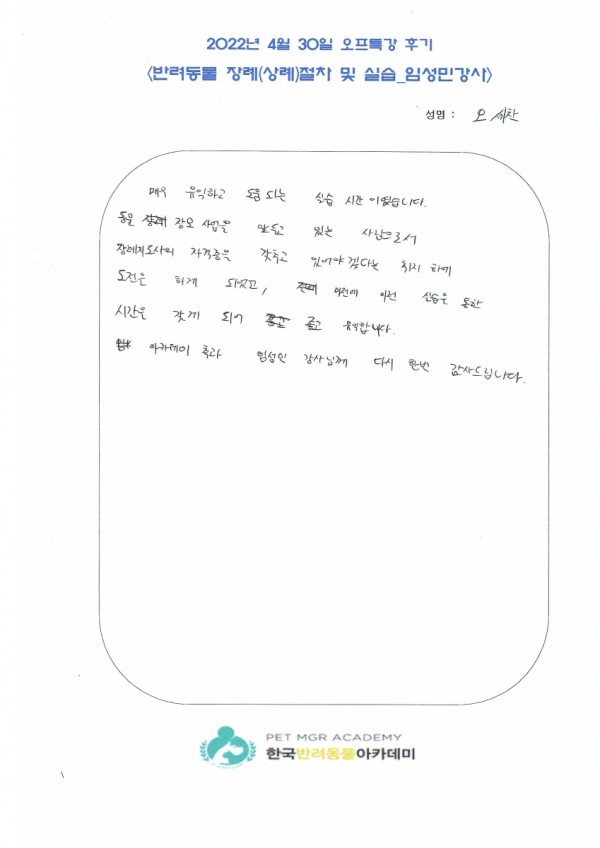 2022년 4월 30일 오프특강 후기
<반려동물 장례(상례)절차 및 실습_임성민강사>
성명 : 오세찬
매우 유익하고 도움되는 실습 시간이었습니다.
동물 장묘 사업을 앞두고 있는 사람으로서
장례지도사의 자격증을 갖추고 있어야겠다는 취지 하에
도전을 하게 되었고, 이전에 이런 실습을 통한
시간을 갖게 되어 좋고 유익합니다.
아카데미 측과 임성민 강사님께 다시 한번 감사드립니다.
PET MGR ACADEMY
한국반려동물아카데미